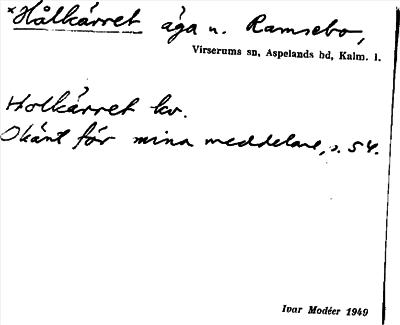 ×Hålkärret äga u. Ramsebo,
Virserums sn, Aspelands hd, Kalm. l.
Holkärret kv.
Okänt för mina meddelare, s. 54.
Ivar Modéer 1949